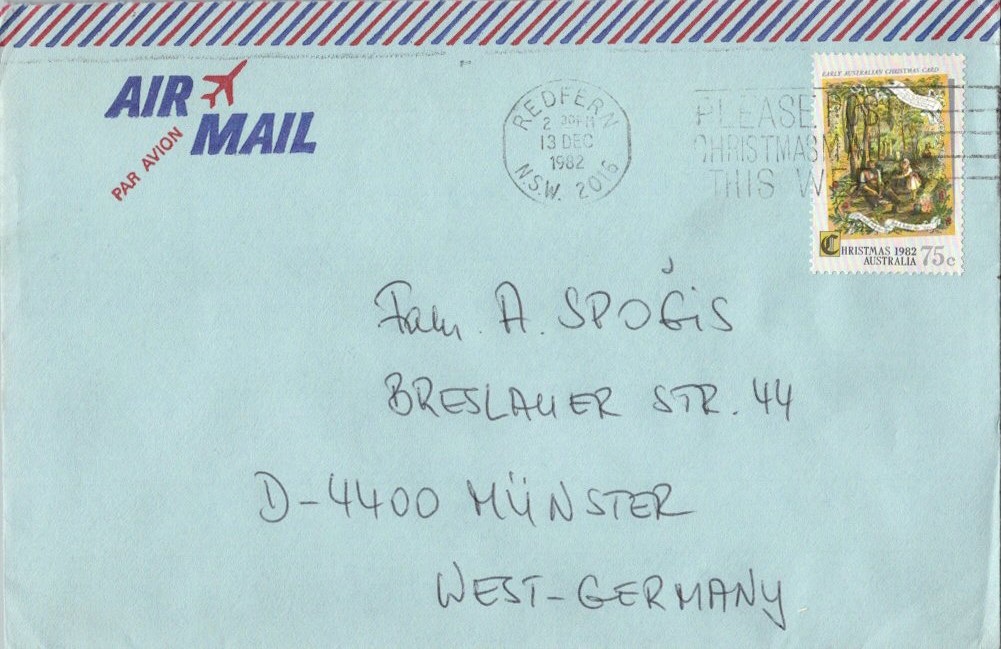 AIR MAIL
PAR AVION
REDFERN
2 30PM
13 DEC
1982
N.S.W. 2016
PLEASE POST
CHRISTMAS MAIL
THIS WEEK
EARLY AUSTRALIAN CHRISTMAS CARD
CHRISTMAS 1982
AUSTRALIA 75c
Fam. A. SPOĞiS
BRESLAUER STR. 44
D-4400 MÜNSTER
WEST-GERMANY